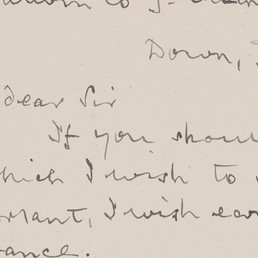 to
Down,
dear Sir
If you shou
hich I wish to
rrant, I wish ear
ance.